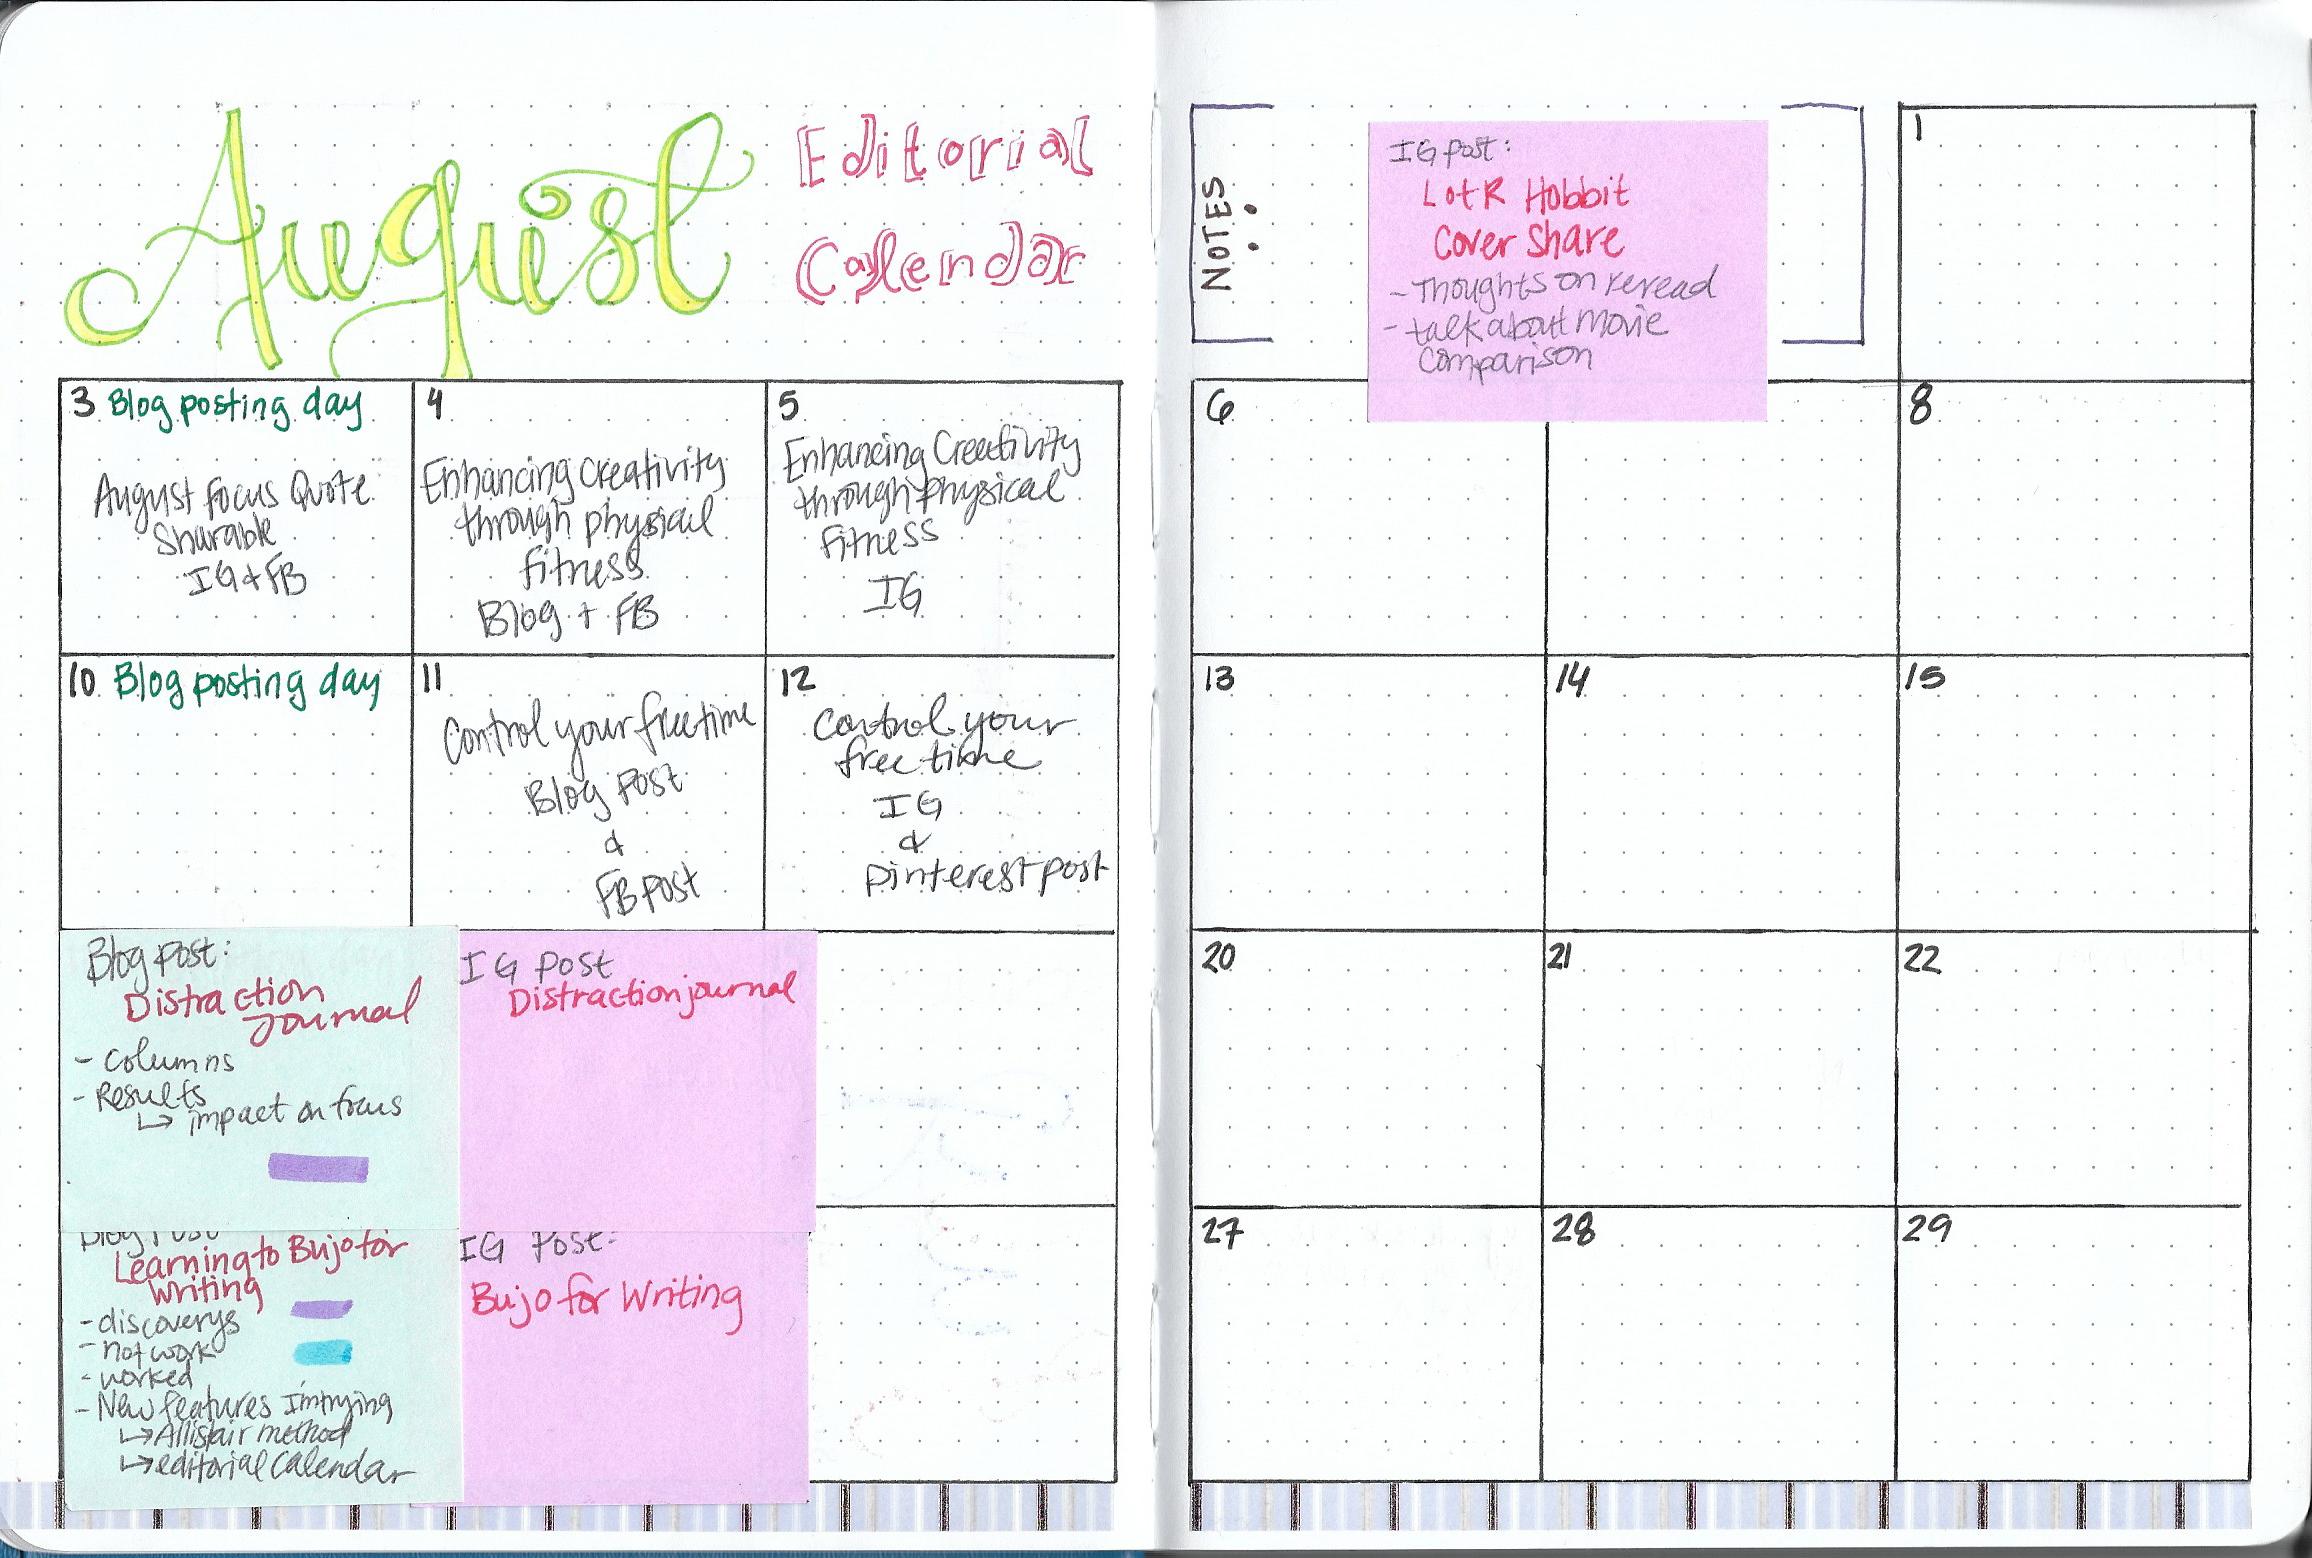 August
Editorial
Calendar
3 Blog posting day
August Focus Quote
Sharable
IG & FB
4
Enhancing Creativity
through physical
fitness
Blog + FB
5
Enhancing Creativity
through physical
Fitness
IG
10 Blog posting day
11
Control your free time
Blog Post
&
FB Post
12
Control your
free time
IG
&
Pinterest post
Blog Post:
Distraction
Journal
- Columns
- Results
↳ impact on focus
IG Post
Distraction journal
Blog Post
Learning to Bujo for
Writing
- discoverys
- not work
- worked
- New features I'm trying
↳ Allistair method
↳ editorial calendar
IG Post:
Bujo for Writing
NOTES
IG Post:
LotR Hobbit
Cover Share
- Thoughts on reread
- talk about Movie
Comparison
1
6
8
13
14
15
20
21
22
27
28
29